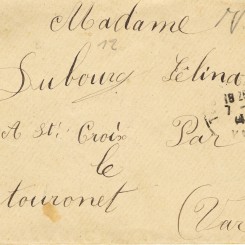 Madame
12
Dubourg Félina
A St Croix Par
le
touronet (Var